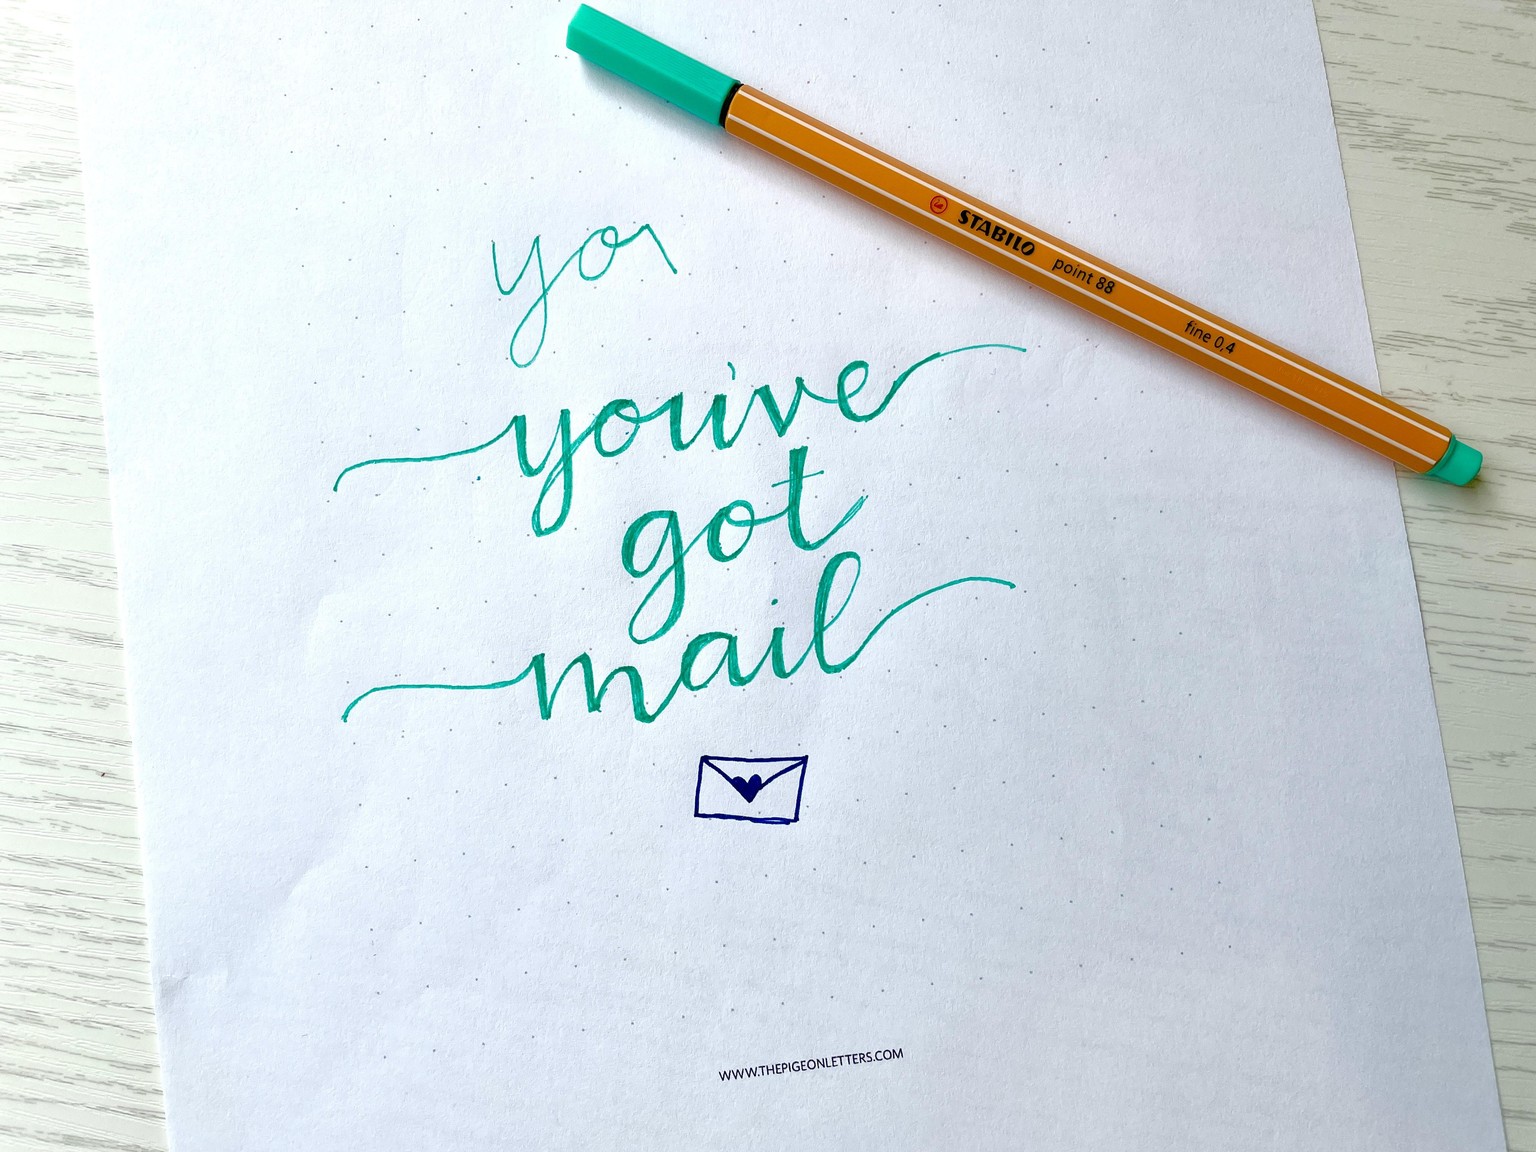 STABILO point 88 fine 0,4
yo
you've
got
mail
WWW.THEPIGEONLETTERS.COM